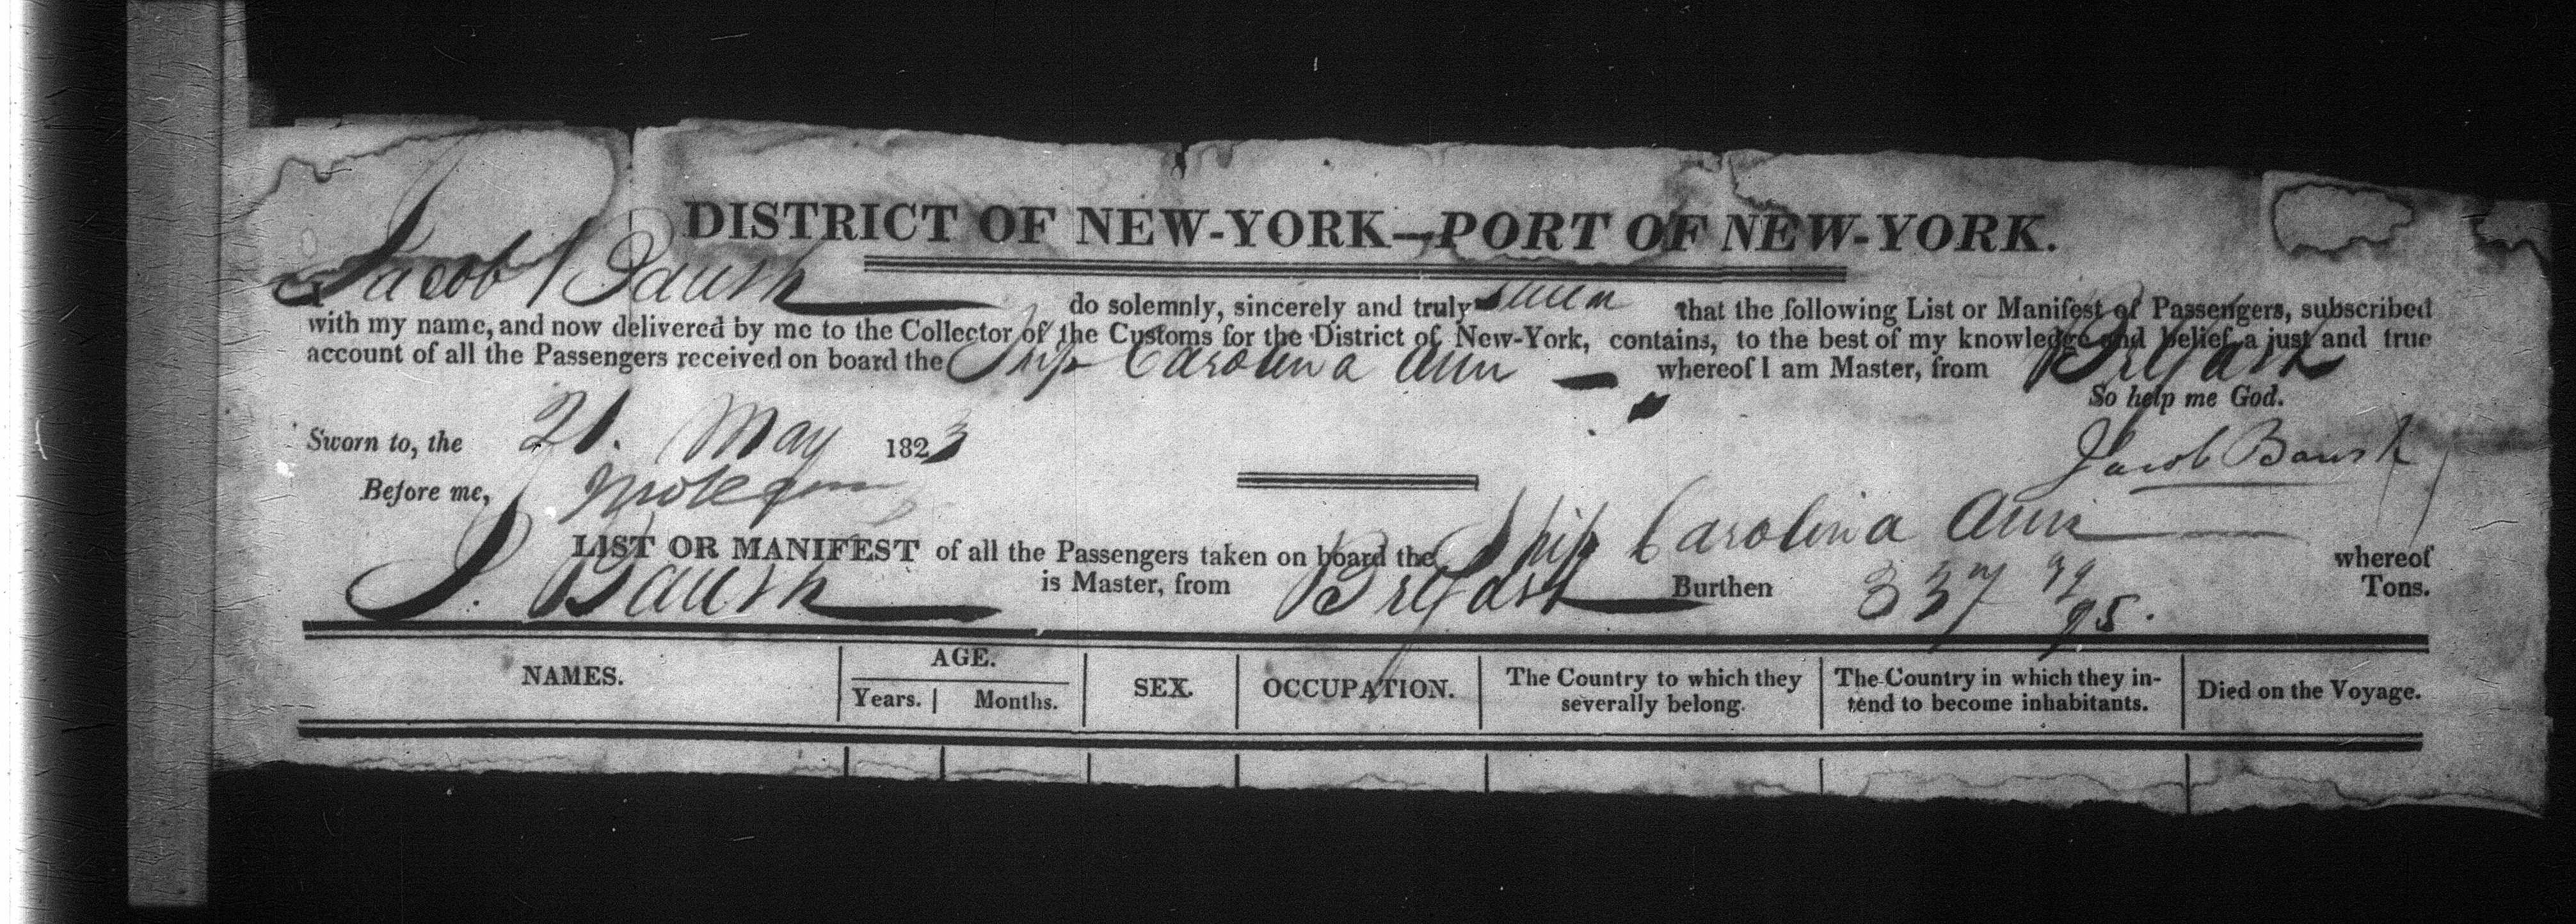 DISTRICT OF NEW-YORK—PORT OF NEW-YORK.
I Jacob Baush do solemnly, sincerely and truly swear that the following List or Manifest of Passengers, subscribed
with my name, and now delivered by me to the Collector of the Customs for the District of New-York, contains, to the best of my knowledge and belief, a just and true
account of all the Passengers received on board the Ship Carolina Ann whereof I am Master, from Belfast
So help me God.
Sworn to, the 21. May 1823
Jacob Baush
Before me,
LIST OR MANIFEST of all the Passengers taken on board the Ship Carolina Ann whereof
J. Baush is Master, from Belfast Burthen 337 Tons.
NAMES. AGE. Years. Months. SEX. OCCUPATION. The Country to which they severally belong. The Country in which they intend to become inhabitants. Died on the Voyage.